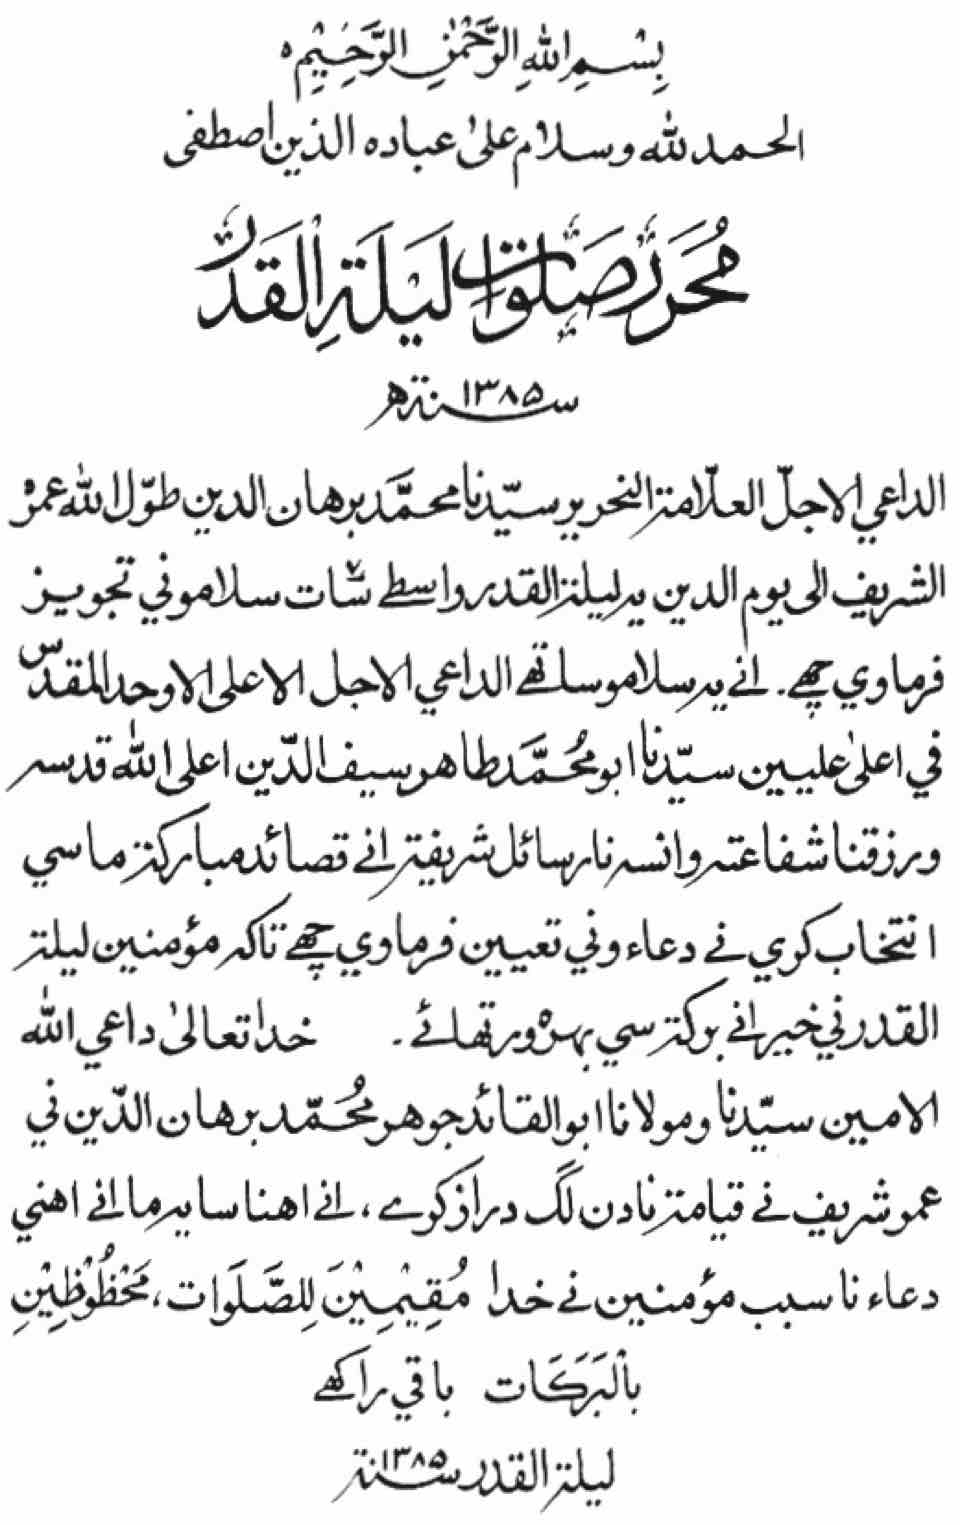 بِسْمِ اللهِ الرَّحْمٰنِ الرَّحِيْمِ
الحمد لله وسلام على عباده الذين اصطفى
مُحَرَّر صَلَوات لَيلَةِ القَدَر
سنة ١٣٨٥هـ
الداعي الاجلّ العلّامة النحرير سيّدنا محمّد برهان الدين طوّل الله عمره
الشريف الى يوم الدين يه ليلة القدر واسطے سات ٧ سلامو ني تجويز
فرماوي چھے۔ انے يه سلامو ساتھے الداعي الاجل الاعلى الاوحد المقدّس
في اعلىٰ عليين سيّدنا ابو مُحمَّد طاهر سيف الدّين اعلى الله قدسه
ورزقنا شفاعته وانسه نا رسائل شريفة انے قصائد مباركة ما سي
انتخاب كري نے دعاء وني تعيين فرماوي چھے تاكه مؤمنين ليلة
القدر ني خير انے بركة سي بهره ور تھائے۔ خدا تعالىٰ داعي الله
الامين سيّدنا ومولانا ابو القائد جوهر مُحمّد برهان الدّين ني
عمر شريف نے قيامة نا دن لگ دراز كرے، انے اهنا سايه ما انے اهني
دعاء نا سبب مؤمنين نے خدا مُقِيْمِيْنَ لِلصَّلَوات، مَحْظُوْظِيْنِ
بالْبَرَكَات باقي راكھے
ليلة القدر سنة ١٣٨٥